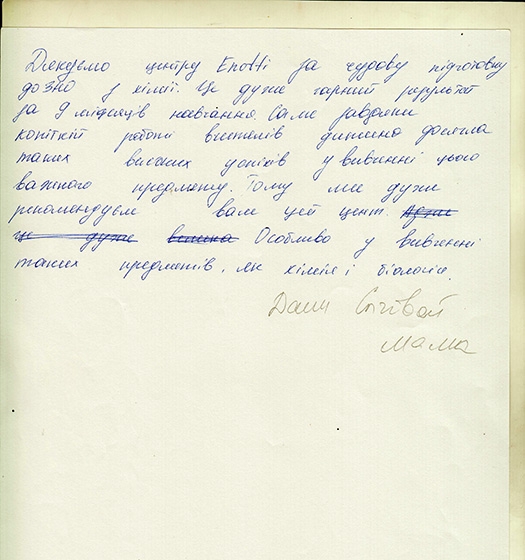 Дякуємо центру Enotti за чудову підготовку
до ЗНО з хімії. Це дуже гарний результат
за 9 місяців навчання. Саме завдяки
копіткій роботі вчителів дитина досягла
таких високих успіхів у вивченні цього
важкого предмету. Тому ми дуже
рекомендуєм вам цей цент.
це дуже Особливо у вивченні
таких предметів, як хімія і біологія.
Мама